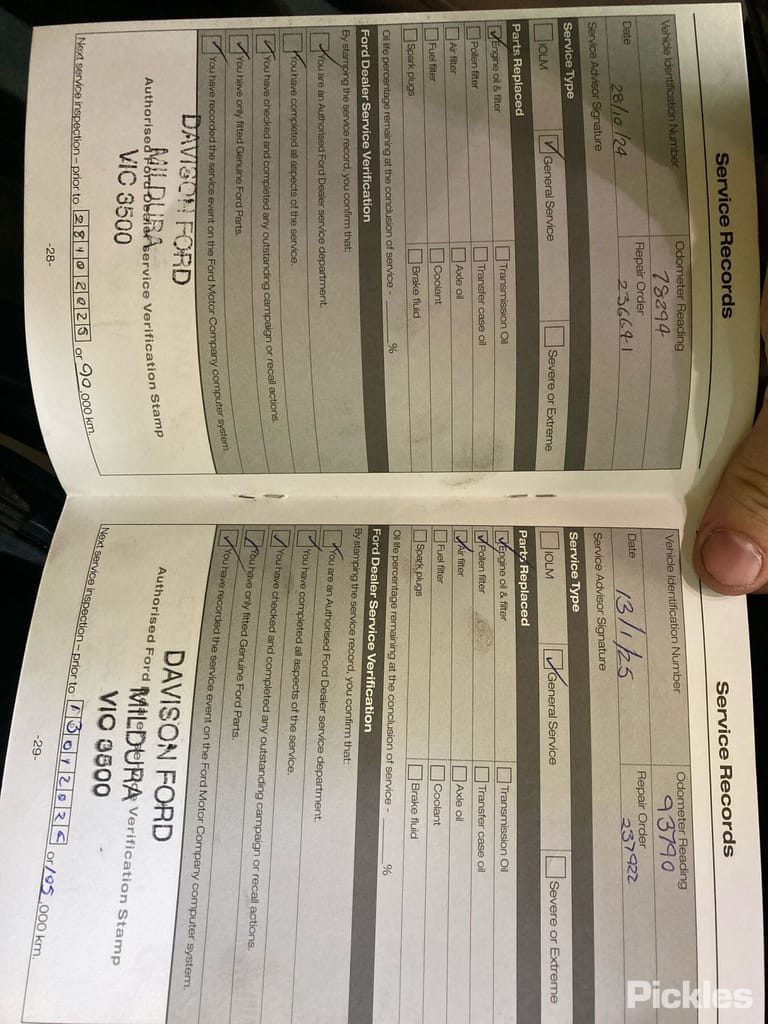 Service Records
Vehicle Identification Number
Odometer Reading
78894
Date
28/10/24
Repair Order
236641
Service Advisor Signature
Service Type
IOLM
General Service
Severe or Extreme
Parts Replaced
Engine oil & filter
Transmission Oil
Pollen filter
Transfer case oil
Air filter
Axle oil
Fuel filter
Coolant
Spark plugs
Brake fluid
Oil life percentage remaining at the conclusion of service - %
Ford Dealer Service Verification
By stamping the service record, you confirm that:
You are an Authorised Ford Dealer service department.
You have completed all aspects of the service.
You have checked and completed any outstanding campaign or recall actions.
You have only fitted Genuine Ford Parts.
You have recorded the service event on the Ford Motor Company computer system.
DAVISON FORD
MILDURA
VIC 3500
Authorised Ford Dealer Service Verification Stamp
Next service inspection – prior to 28102025 or 90,000 km.
-28-
Service Records
Vehicle Identification Number
Odometer Reading
93790
Date
13/1/25
Repair Order
237922
Service Advisor Signature
Service Type
IOLM
General Service
Severe or Extreme
Parts Replaced
Engine oil & filter
Transmission Oil
Pollen filter
Transfer case oil
Air filter
Axle oil
Fuel filter
Coolant
Spark plugs
Brake fluid
Oil life percentage remaining at the conclusion of service - %
Ford Dealer Service Verification
By stamping the service record, you confirm that:
You are an Authorised Ford Dealer service department.
You have completed all aspects of the service.
You have checked and completed any outstanding campaign or recall actions.
You have only fitted Genuine Ford Parts.
You have recorded the service event on the Ford Motor Company computer system.
DAVISON FORD
MILDURA
VIC 3500
Authorised Ford Verification Stamp
Next service inspection – prior to or 105,000 km.
-29-
Pickles